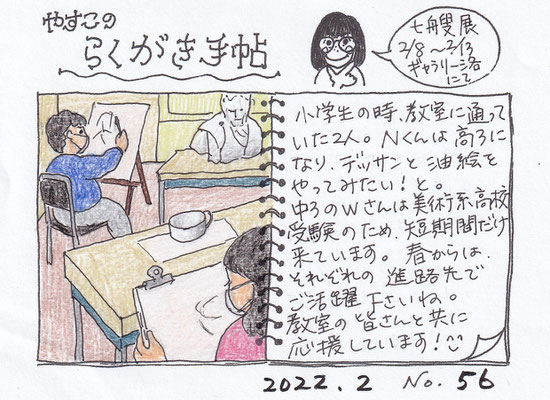 やすこの
らくがき手帖
七艘展
2/8～2/13
ギャラリー洛
にて
小学生の時、教室に通って
いた2人。Nくんは高3に
なり、デッサンと油絵を
やってみたい！と。
中3のWさんは美術系高校
受験のため、短期間だけ
来ています。春からは、
それぞれの進路先で
ご活躍下さいね。
教室の皆さんと共に
応援しています！
2022.2 No.56